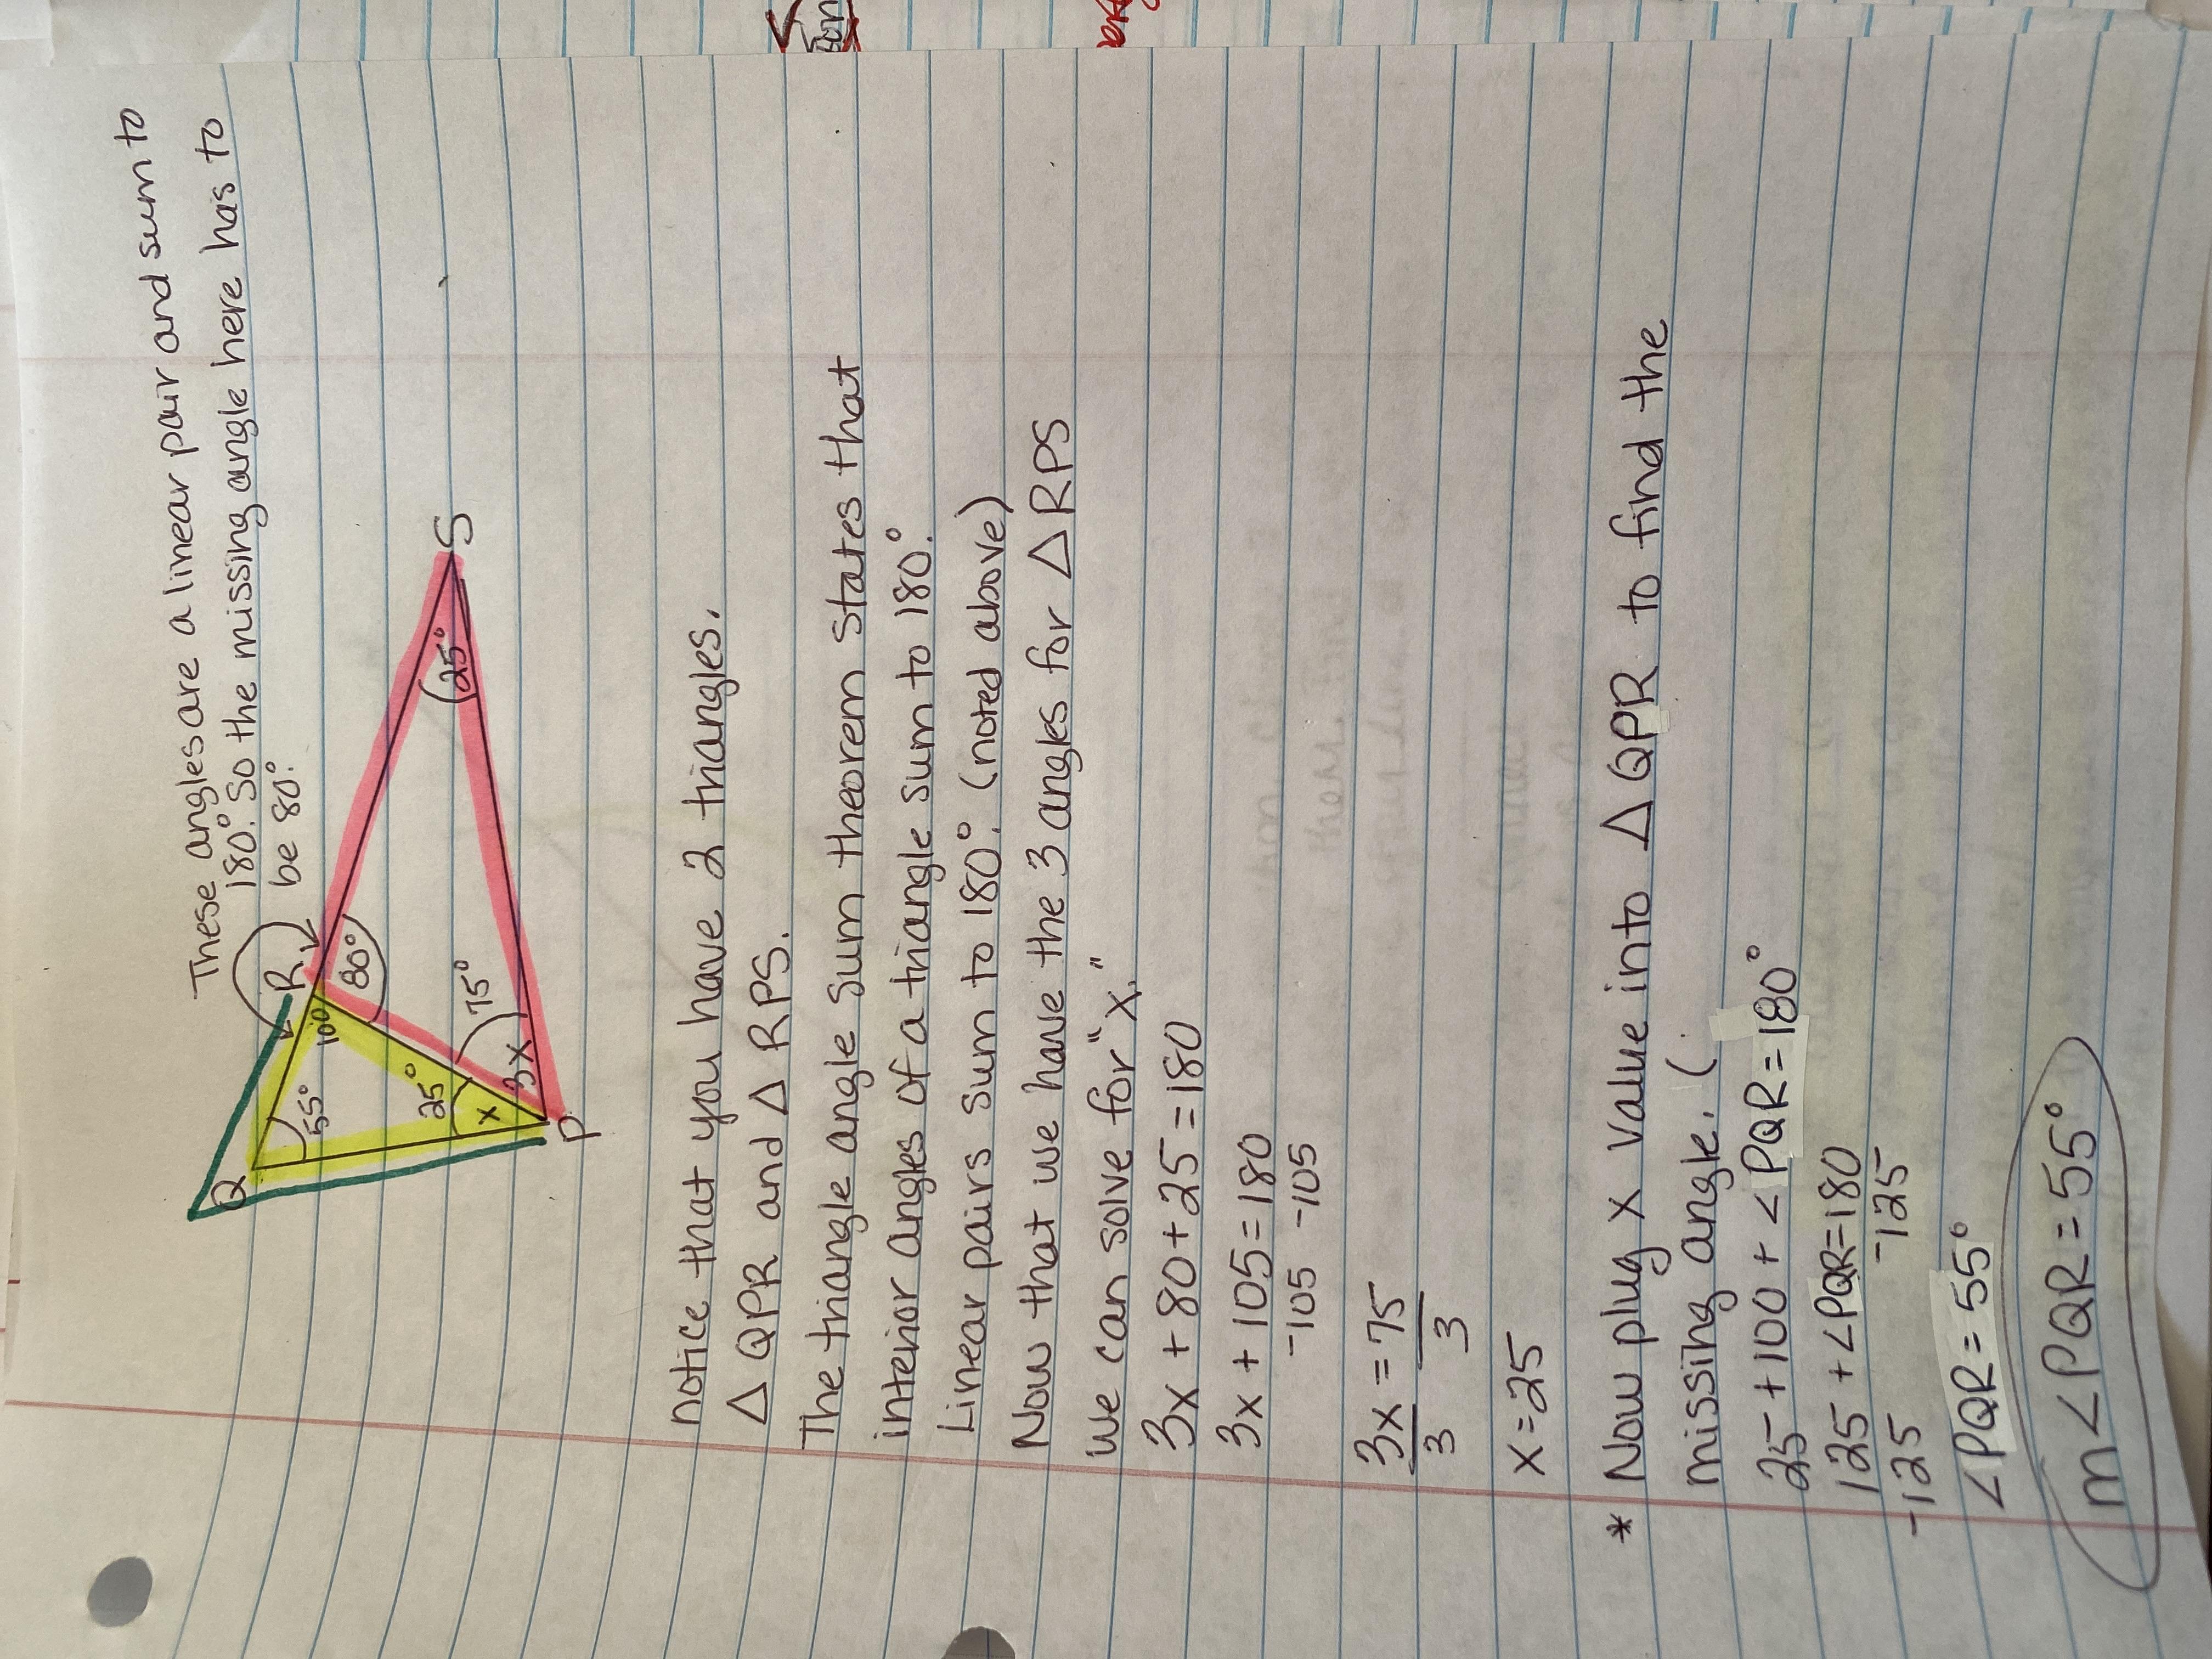 These angles are a linear pair and sum to
180°. So the missing angle here has to
be 80°.
Q
R
55°
100
80°
25°
(25°
S
x
75°
3x
P
notice that you have 2 triangles.
△ QPR and △ RPS.
The triangle angle sum theorem states that
interior angles of a triangle sum to 180°.
Linear pairs sum to 180°. (noted above)
Now that we have the 3 angles for △ RPS
We can solve for "x."
3x + 80 + 25 = 180
3x + 105 = 180
-105 -105
3x = 75
3 3
x = 25
* Now plug x value into △ QPR to find the
missing angle. (
25 + 100 + <PQR = 180°
125 + <PQR = 180
-125 -125
<PQR = 55°
m<PQR = 55°